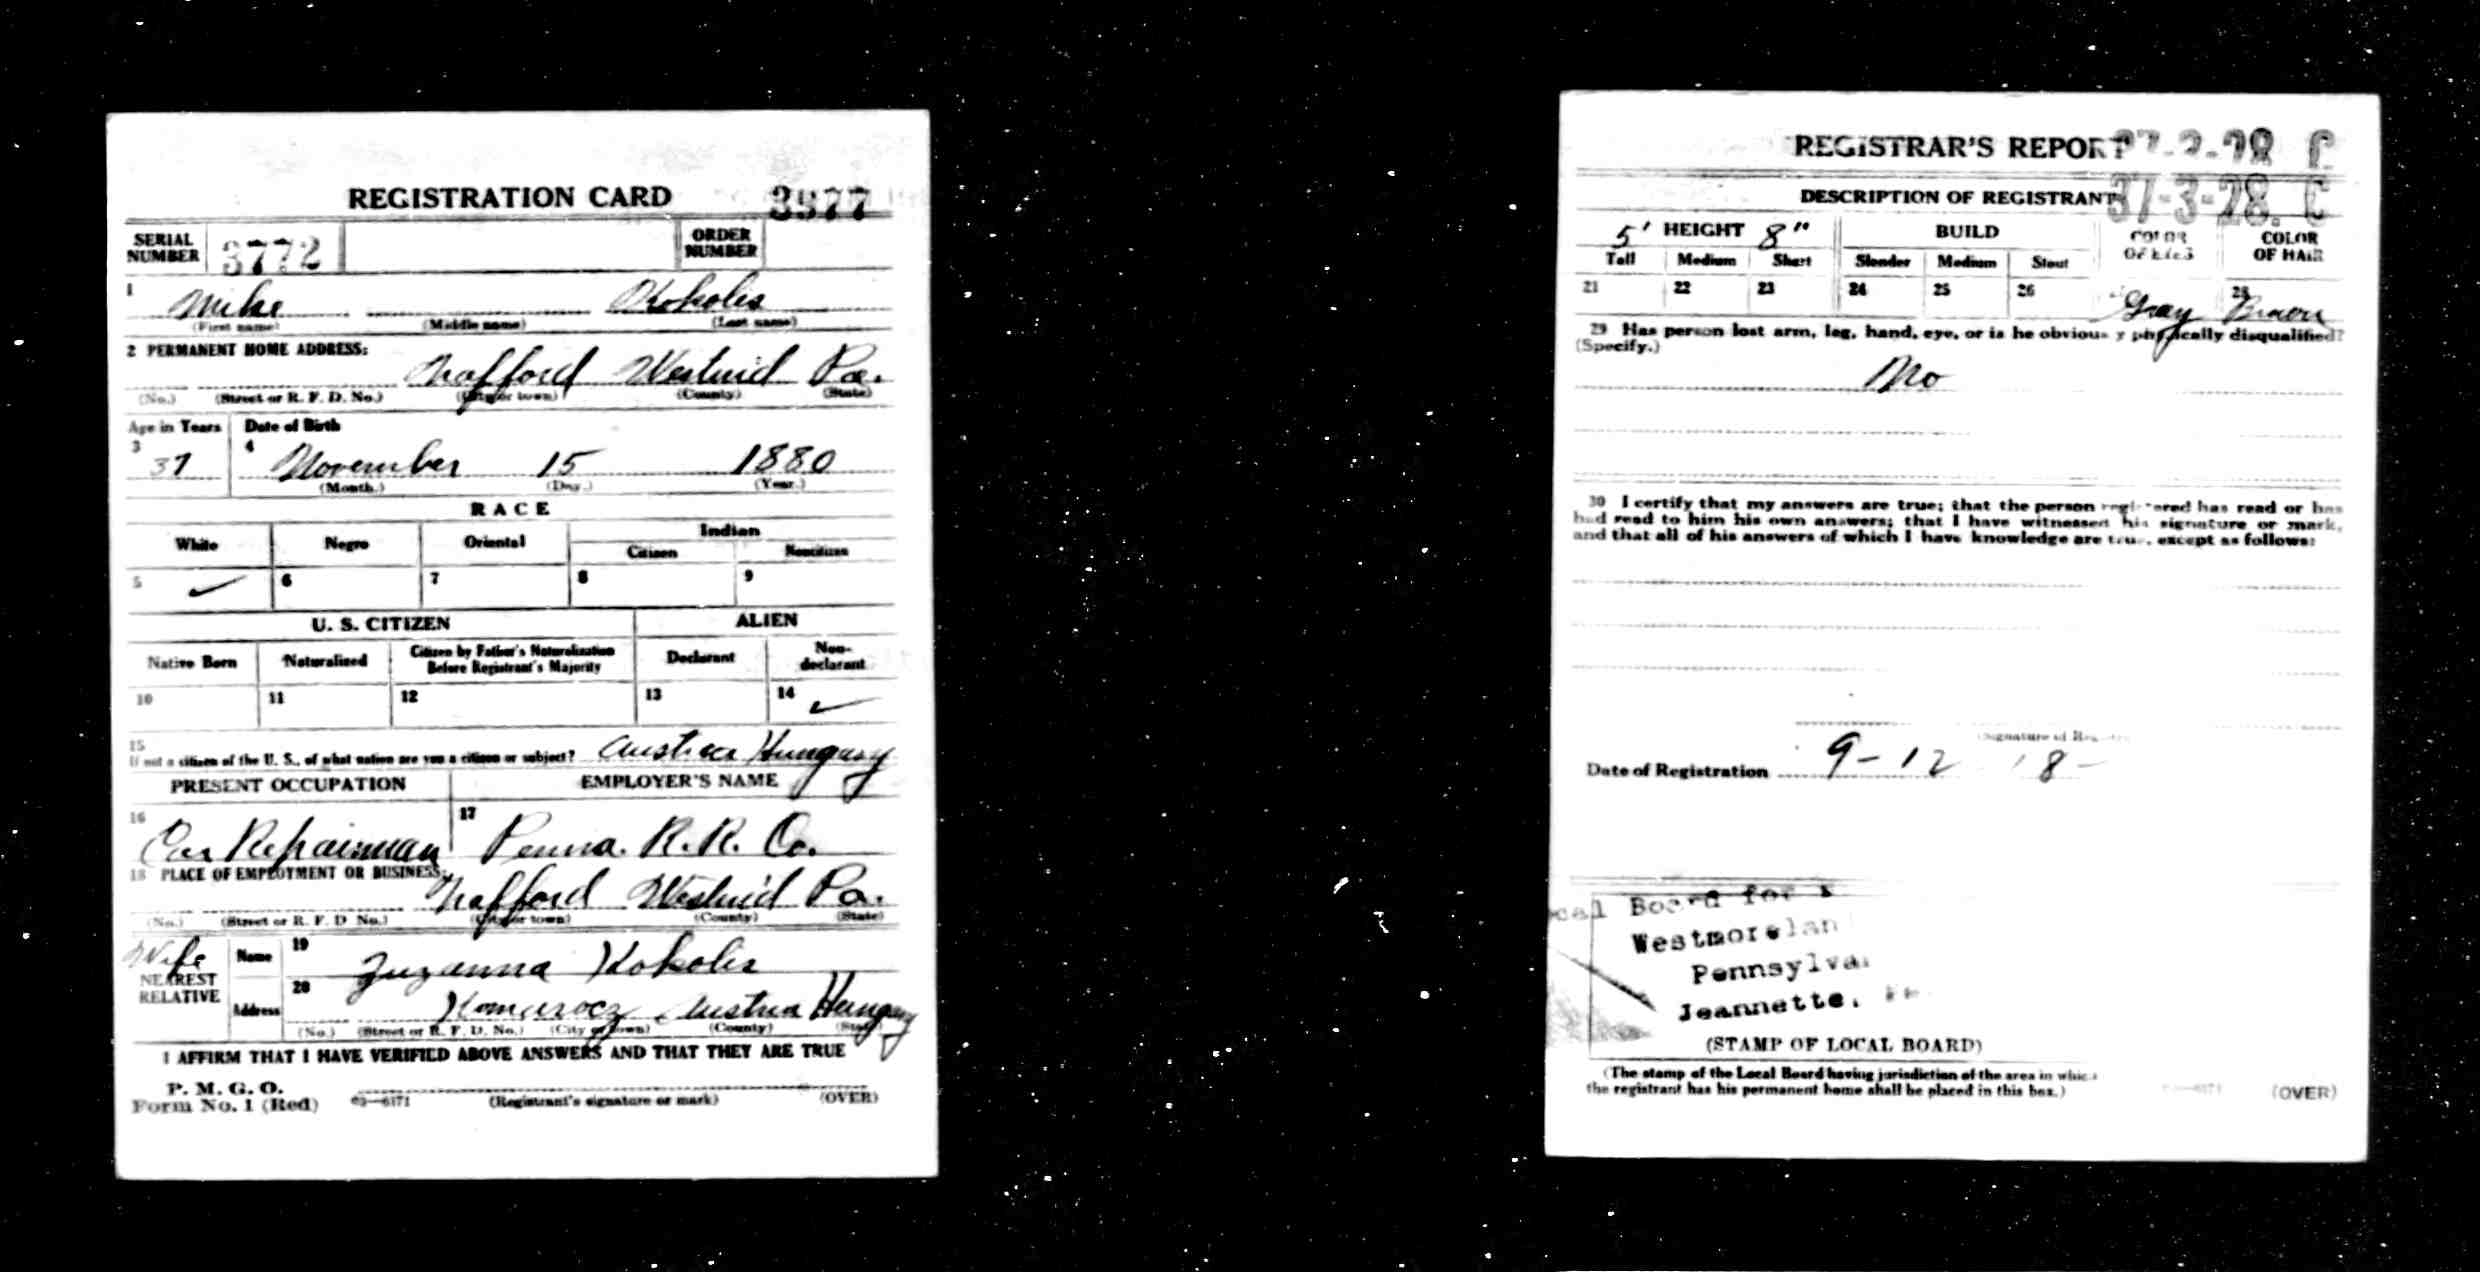 REGISTRATION CARD 3577
SERIAL NUMBER 3772 ORDER NUMBER
1 Mike Kokolis
(First name) (Middle name) (Last name)
2 PERMANENT HOME ADDRESS:
Trafford Westm'd Pa.
(No.) (Street or R. F. D. No.) (City or town) (County) (State)
Age in Years Date of Birth
3 37 4 November 15 1880
(Month.) (Day.) (Year.)
RACE
White Negro Oriental Indian
Citizen Noncitizen
5 ✓ 6 7 8 9
U. S. CITIZEN ALIEN
Native Born Naturalized Citizen by Father's Naturalization Before Registrant's Majority Declarant Non-declarant
10 11 12 13 14 ✓
15
If not a citizen of the U. S., of what nation are you a citizen or subject? Austria Hungary
PRESENT OCCUPATION EMPLOYER'S NAME
16 Car Repairman 17 Penna. R. R. Co.
18 PLACE OF EMPLOYMENT OR BUSINESS:
Trafford Westm'd Pa.
(No.) (Street or R. F. D. No.) (City or town) (County) (State)
Wife
NEAREST RELATIVE
Name 19 Zuzanna Kokolis
Address 20 Komarocz Austria Hungary
(No.) (Street or R. F. D. No.) (City or town) (County) (State)
I AFFIRM THAT I HAVE VERIFIED ABOVE ANSWERS AND THAT THEY ARE TRUE
P. M. G. O.
Form No. 1 (Red) (Registrant's signature or mark) (OVER)
REGISTRAR'S REPORT 37-3-28 C
DESCRIPTION OF REGISTRANT 37-3-28. C
5' HEIGHT 8" BUILD COLOR OF EYES COLOR OF HAIR
Tall Medium Short Slender Medium Stout
21 22 23 24 25 26 Gray 28 Brown
29 Has person lost arm, leg, hand, eye, or is he obviously physically disqualified?
(Specify.)
No
30 I certify that my answers are true; that the person registered has read or has
had read to him his own answers; that I have witnessed his signature or mark,
and that all of his answers of which I have knowledge are true, except as follows:
Date of Registration 9-12 18-
Board for
Westmorelan
Pennsylva
Jeannette,
(STAMP OF LOCAL BOARD)
(The stamp of the Local Board having jurisdiction of the area in which
the registrant has his permanent home shall be placed in this box.)
(OVER)